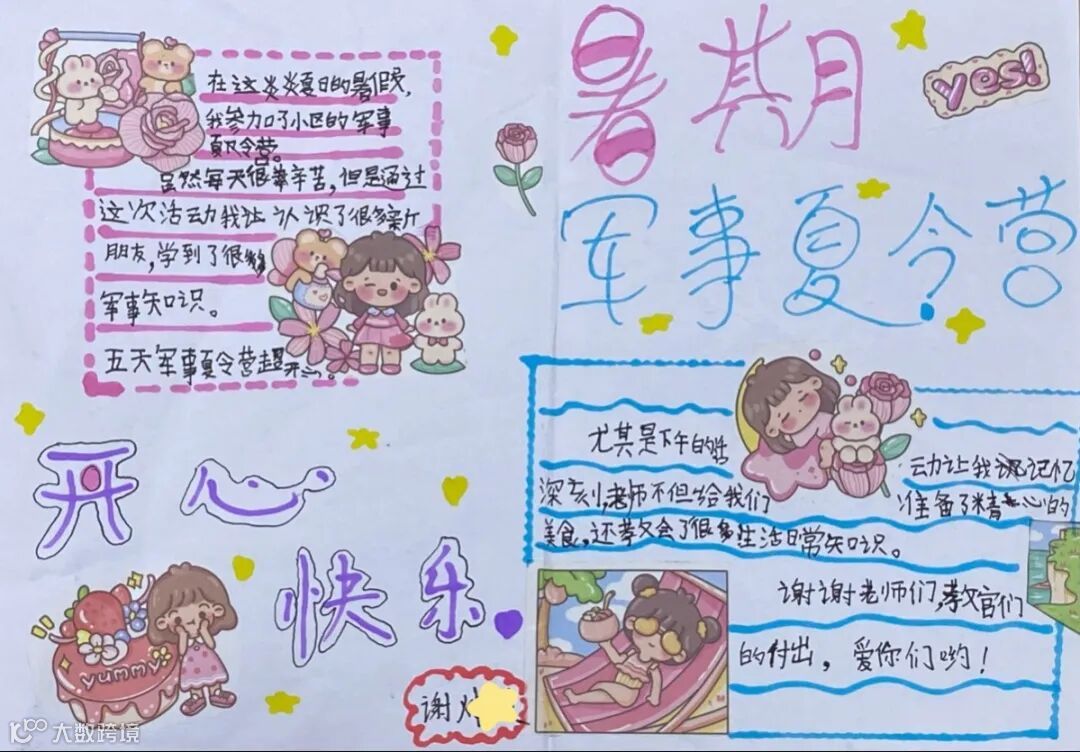 在这炎炎夏日的暑假,
我参加了小区的军事
夏令营。
虽然每天很辛苦,但是通过
这次活动我让认识了很多新
朋友,学到了很多
军事知识。
五天军事夏令营超开心。
暑期
yes!
军事夏令营
尤其是下午的活
动让我记忆
深刻,老师不但给我们
准备了精心的
美食,还教会了很多生活日常知识。
谢谢老师们,教官们
的付出，爱你们哟！
开心
快乐
yummy
谢
大数跨境